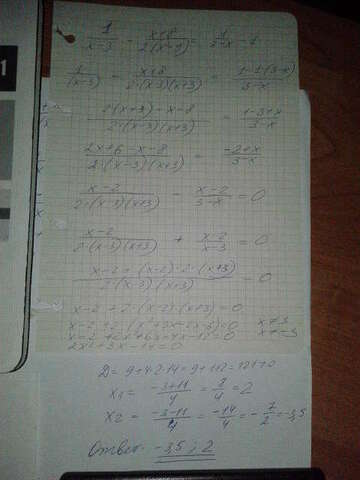 1/(x-3) - (x+8)/(2(x²-9)) = 1/(3-x) - 1
1/(x-3) - (x+8)/(2·(x-3)(x+3)) = (1-1·(3-x))/(3-x)
(2(x+3)-x-8)/(2·(x-3)(x+3)) = (1-3+x)/(3-x)
(2x+6-x-8)/(2·(x-3)(x+3)) = (-2+x)/(3-x)
(x-2)/(2·(x-3)(x+3)) - (x-2)/(3-x) = 0
(x-2)/(2·(x-3)(x+3)) + (x-2)/(x-3) = 0
(x-2+(x-2)·2·(x+3))/(2·(x-3)(x+3)) = 0
x-2+2·(x-2)·(x+3)=0 x≠3
x≠-3
2x²+3x-14=0
D=9+4·2·14=9+112=121>0
x1= (-3+11)/4 = = 2
x2= (-3-11)/4 = -14/4 = -7/2 = -3,5
Ответ: -3,5 ; 2
1